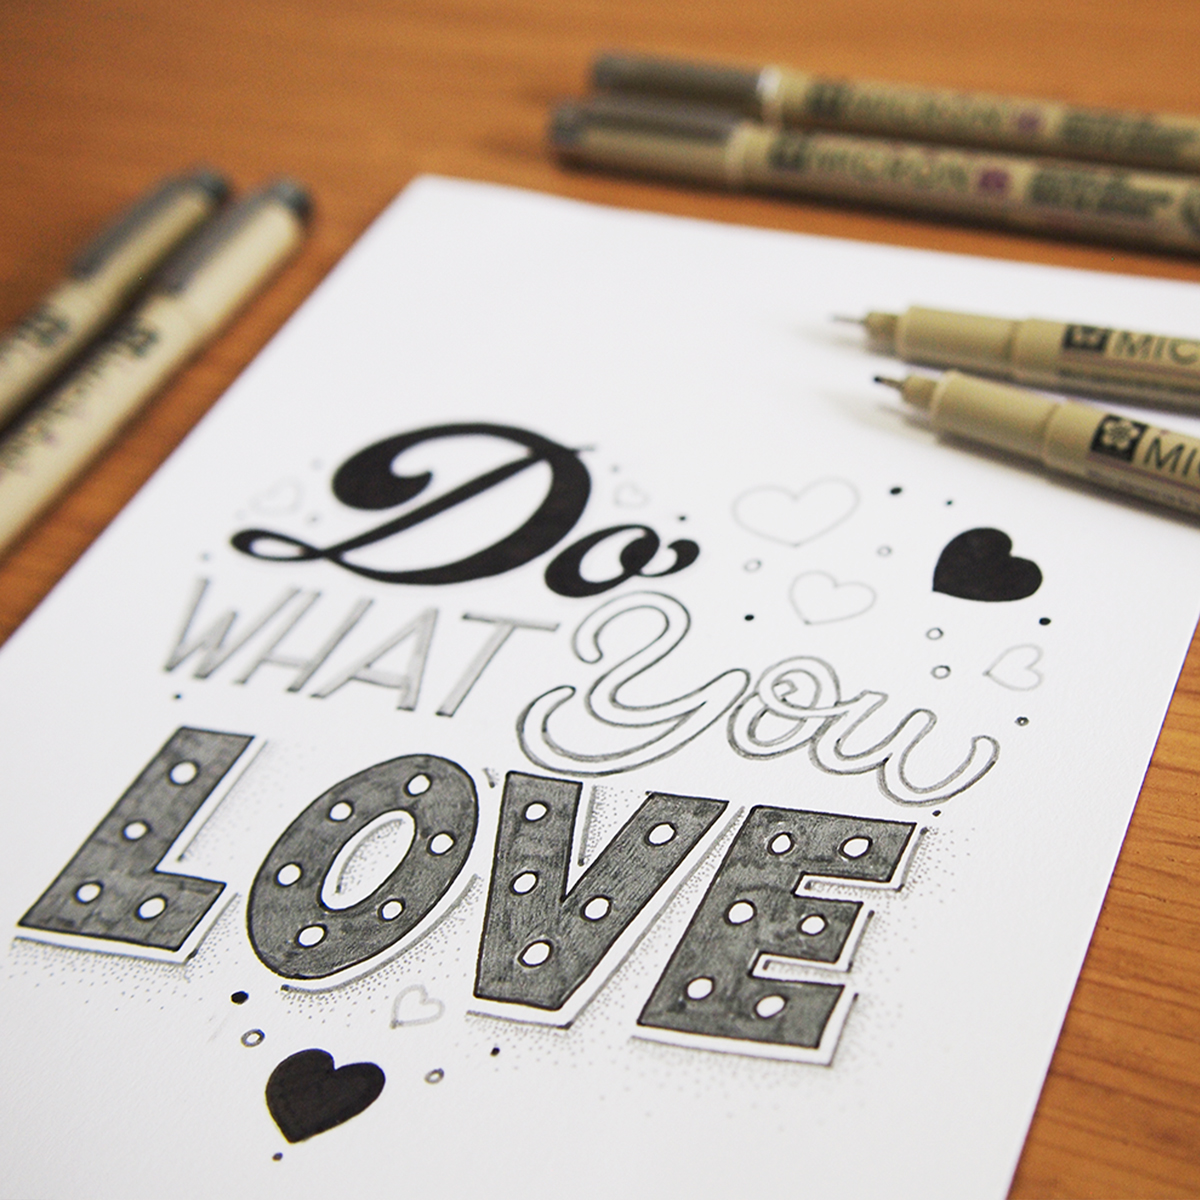 MICRON
MICRON
MIC
MI
Do
WHAT You
LOVE